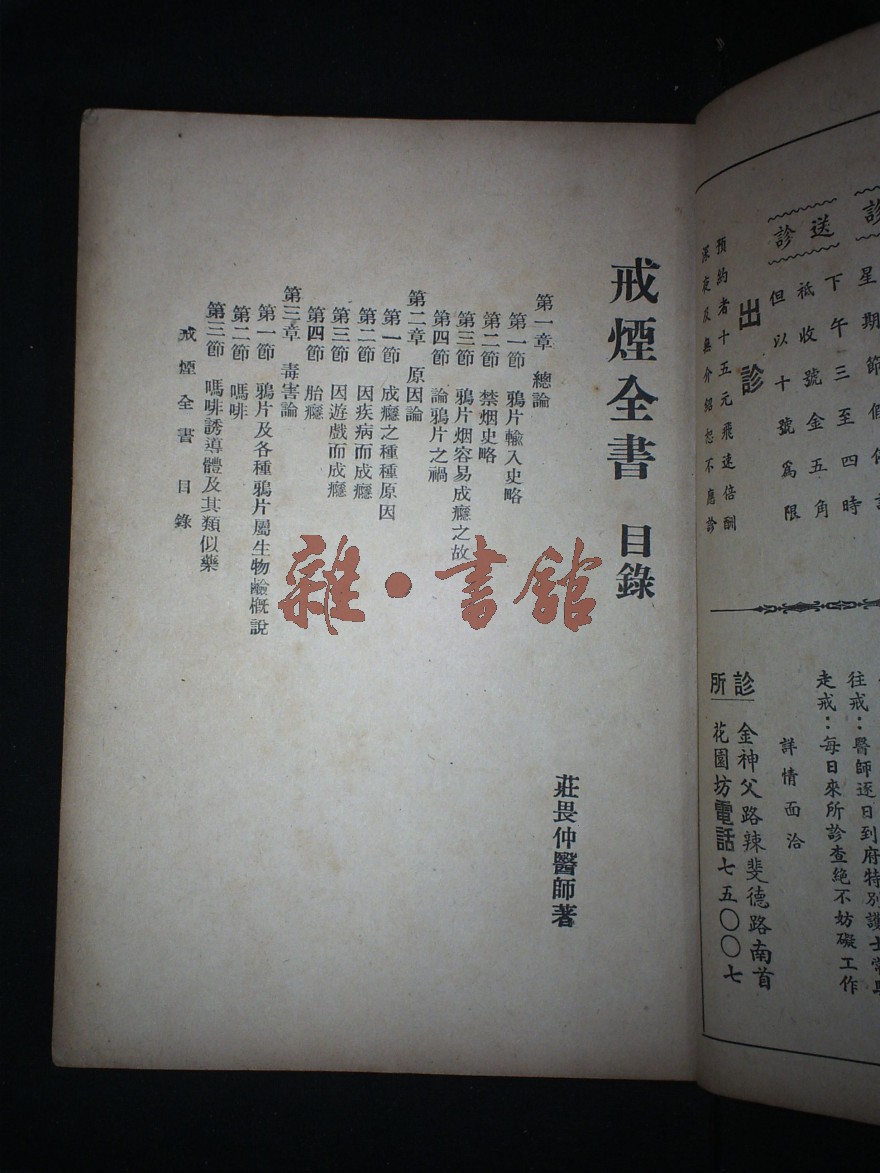 診
星期節假停診
送診
下午三至四時
祗收號金五角
但以十號為限
出診
預約者十五元飛速倍酬
深夜及無介紹恕不應診
往戒：醫師逐日到府特別護士常駐
走戒：每日來所診查絕不妨礙工作
詳情面洽
診所
金神父路辣斐德路南首
花園坊電話七五〇〇七
戒煙全書 目錄
莊畏仲醫師著
第一章 總論
第一節 鴉片輸入史略
第二節 禁烟史略
第三節 鴉片烟容易成癮之故
第四節 論鴉片之禍
第二章 原因論
第一節 成癮之種種原因
第二節 因疾病而成癮
第三節 因遊戲而成癮
第四節 胎癮
第三章 毒害論
第一節 鴉片及各種鴉片屬生物鹼概說
第二節 嗎啡
第三節 嗎啡誘導體及其類似藥
戒煙全書 目錄
雜·書館